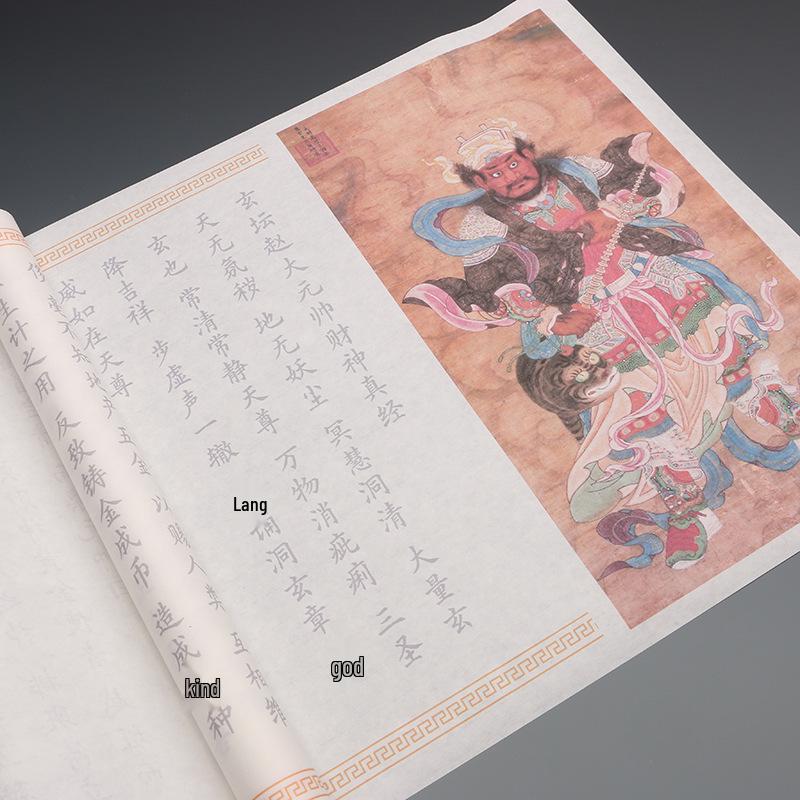 玄坛赵大元帅财神真经
天无氛秽 地无妖尘 冥慧洞清 大量玄
玄也 常清常静天尊 万物消疵痢 三圣
降吉祥 步虚声一辙 Lang 诵洞玄章 god
威如在天尊 五金 以赐人类 互相维
生计之用 反致铸金成币 造成 kind 种